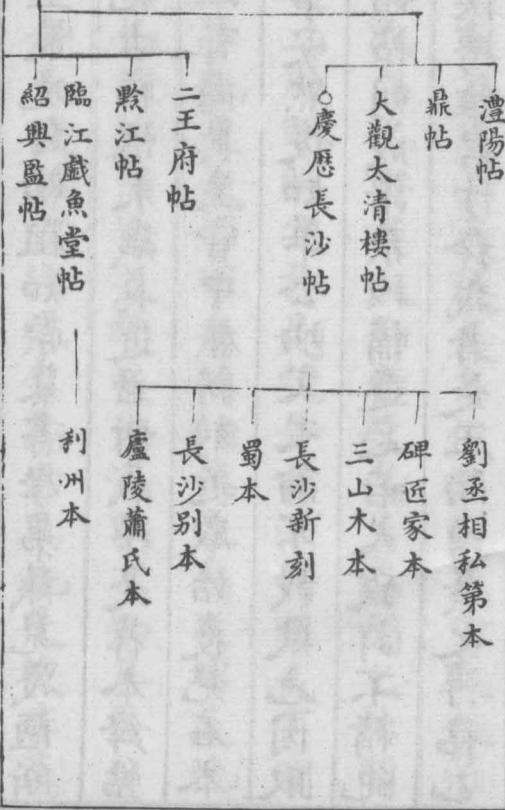 澧陽帖
鼎帖
大觀太清樓帖
○慶歷長沙帖
二王府帖
黔江帖
臨江戲魚堂帖
紹興監帖
劉丞相私第本
碑匠家本
三山木本
長沙新刻
蜀本
長沙别本
廬陵蕭氏本
利州本